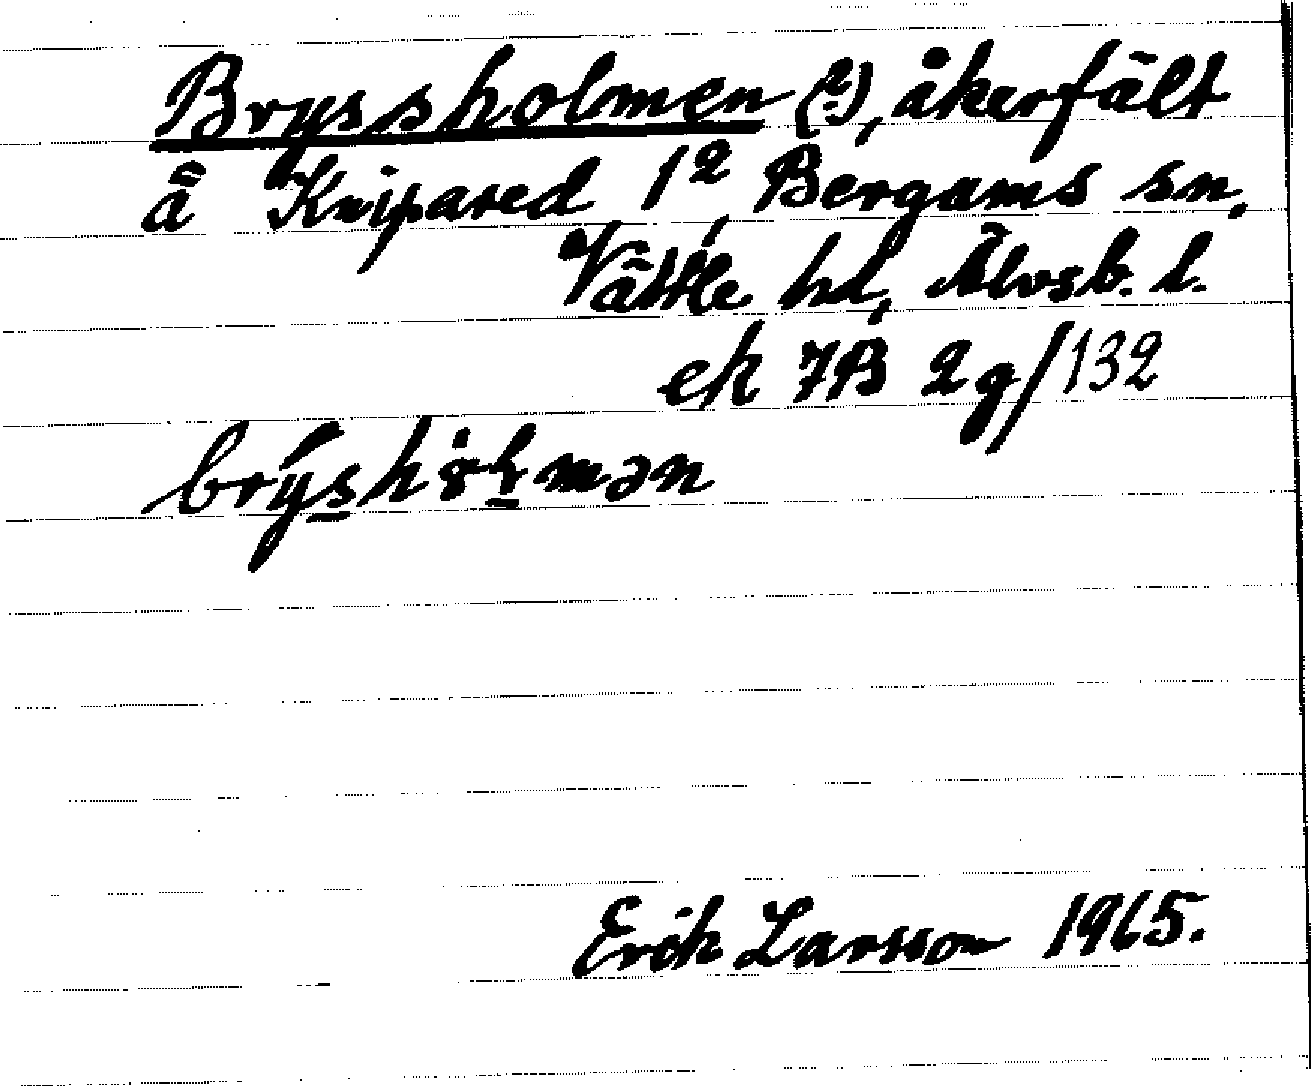 Bryssholmen (?), åkerfält
å Knipared 1², Bergums sn,
Vättle hd, Älvsb. l.
ek 7B 2g/132
Erik Larsson 1965.